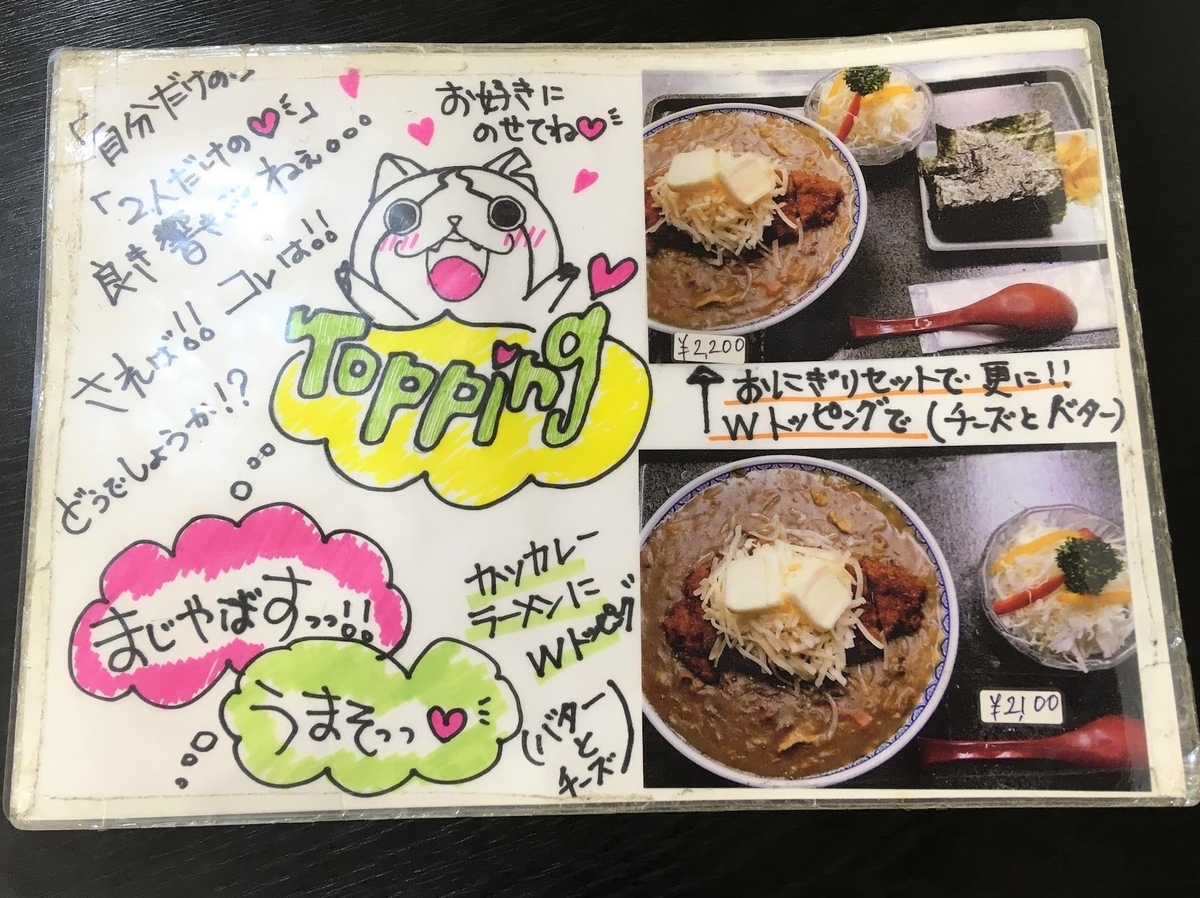 「自分だけの…
「2人だけの♡」
良き響きジャねぇ。。。
されば!! コレは!!
どうでしょうか!?
お好きに
のせてね♡
Topping
まじやばすっっ!!
うまそっっ♡
カツカレー
ラーメンに
Wトッピング
(バターと
チーズ)
¥2,200
↑おにぎりセットで更に!!
Wトッピングで(チーズとバター)
¥2,100